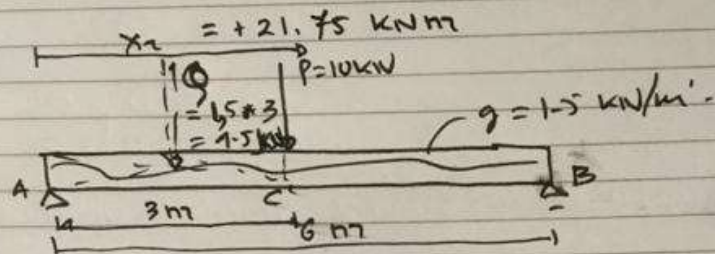 = + 21.75 KNm
x2
Q
P=10KN
= 1,5 * 3
= 4.5 KN
q = 1.5 KN/m'
A
B
C
3 m
6 m